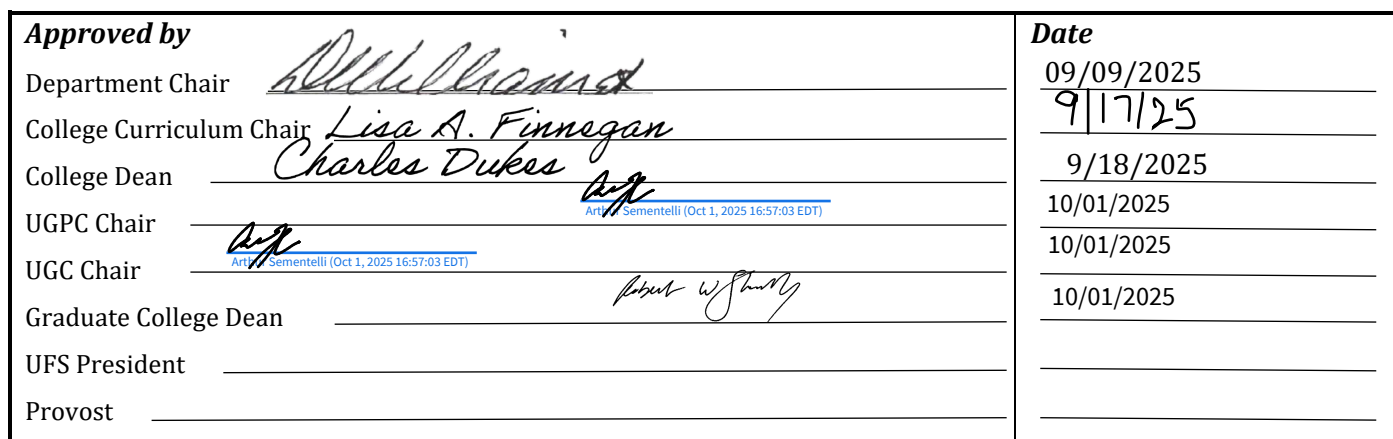 Approved by Date
Department Chair 09/09/2025
College Curriculum Chair Lisa A. Finnegan 9/17/25
College Dean Charles Dukes 9/18/2025
Arthur Sementelli (Oct 1, 2025 16:57:03 EDT)
UGPC Chair 10/01/2025
Arthur Sementelli (Oct 1, 2025 16:57:03 EDT)
UGC Chair 10/01/2025
Graduate College Dean Robert W 10/01/2025
UFS President
Provost